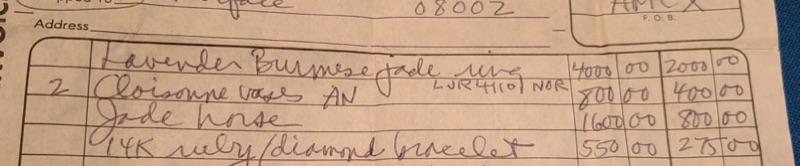 08002
Address
F. O. B.
Lavender Burmese jade ring 4000 00 2000 00
2 Cloisonne vases AN NOR 800 00 400 00
Jade horse 1600 00 800 00
14K ruby/diamond bracelet 550 00 275 00